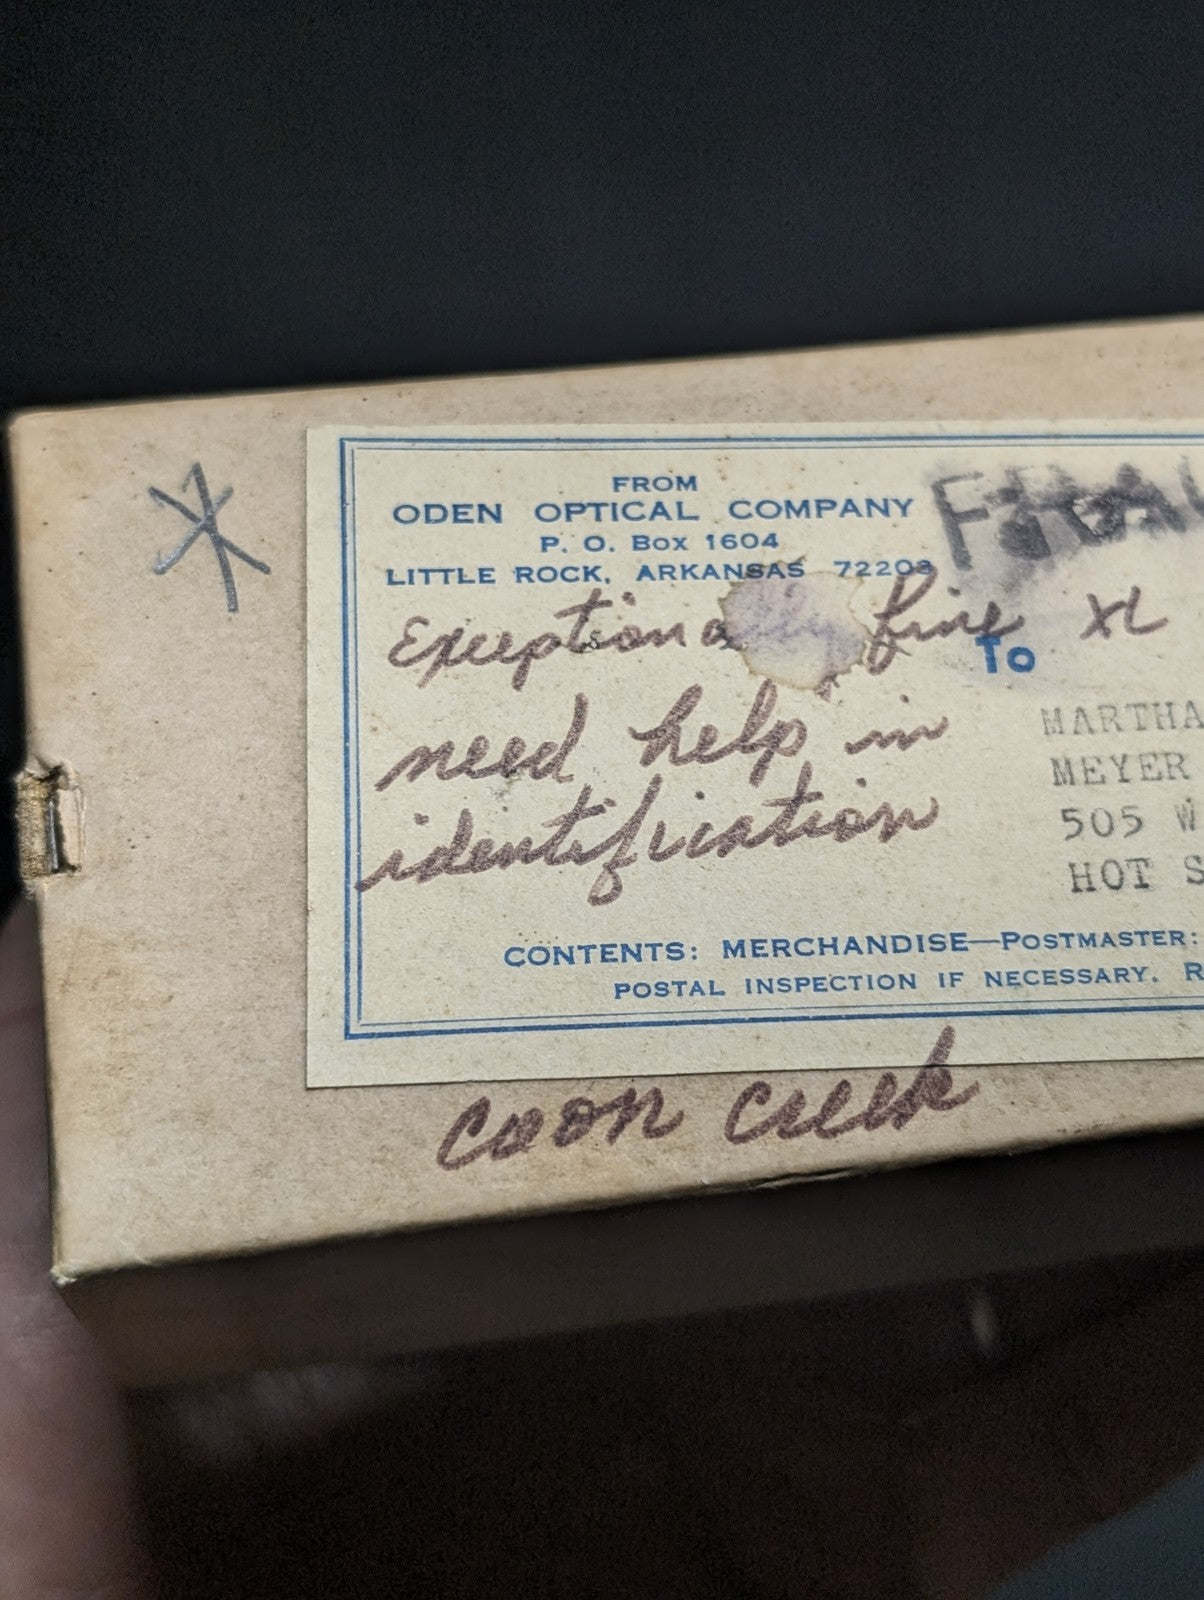 FROM
ODEN OPTICAL COMPANY
P. O. Box 1604
LITTLE ROCK, ARKANSAS 72203
Exceptionally fine XL
To
need help in
identification
MARTHA
MEYER
505 W
HOT S
CONTENTS: MERCHANDISE—POSTMASTER:
POSTAL INSPECTION IF NECESSARY. R
coon creek